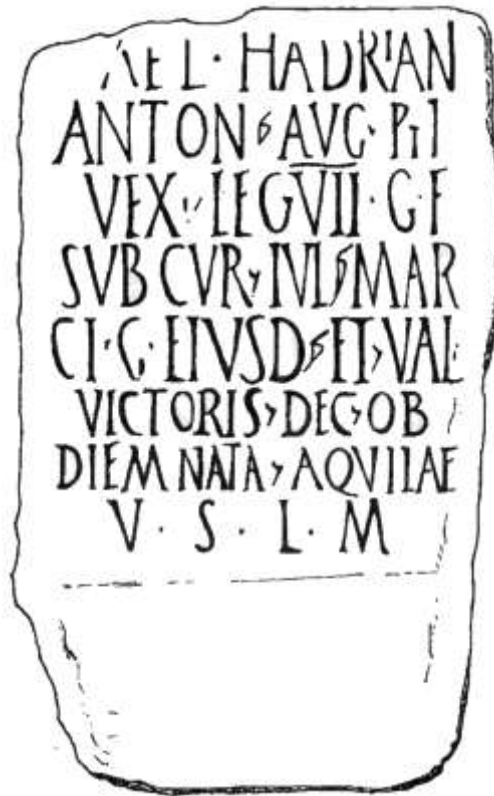 AEL · HADRIAN
ANTON AVG · PII
VEX · LEG VII · G F
SVB CVR IVL MAR
CI · G · EIVSD ET VAL
VICTORIS DEC OB
DIEM NATA AQVILAE
V · S · L · M